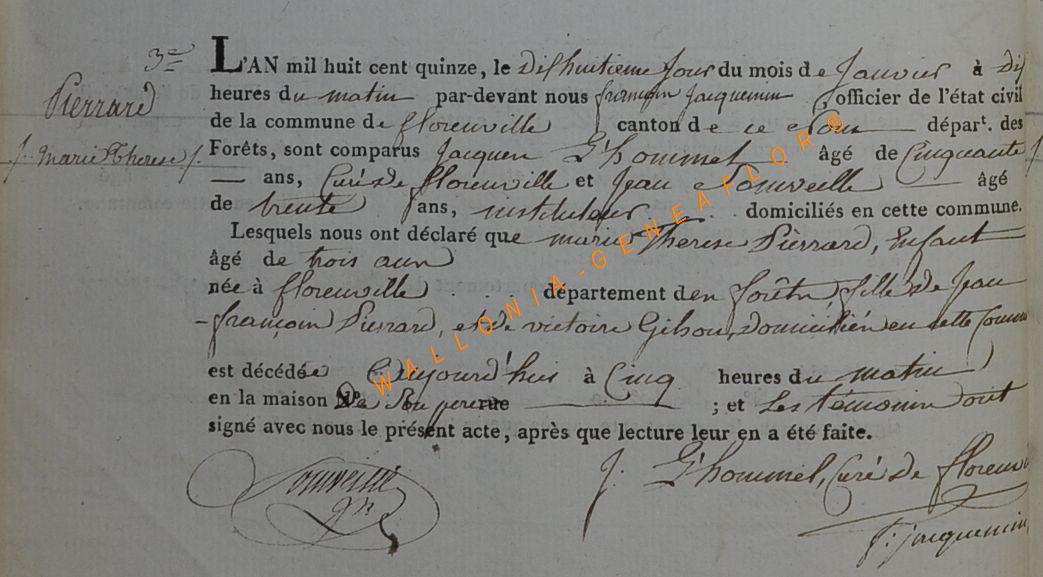 3e
Pierrard
Marie Therese
L'AN mil huit cent quinze, le dixhuitieme Jour du mois de Janvier à dix
heures du matin par-devant nous françois Jacquemin, officier de l'état civil
de la commune de florenville canton de ce Nom départ. des
Forêts, sont comparus Jacques L'hommel âgé de Cinquante
ans, Curé de florenville et Jean Nouveille âgé
de trente ans, instituteur domiciliés en cette commune.
Lesquels nous ont déclaré que marie Therese Pierrard, Enfant
âgé de trois ans
née à florenville département des forêts fille de Jean
françois Pierrard, et de victoire Gilson, domiciliés en cette Commu
est décédée aujourd'hui à Cinq heures du matin
en la maison No de Son pere rue ; et Les témoins ont
signé avec nous le présent acte, après que lecture leur en a été faite.
J. L'hommel, Curé de floren
f. jacquemin
WALLONIA-GENEAFLOR®